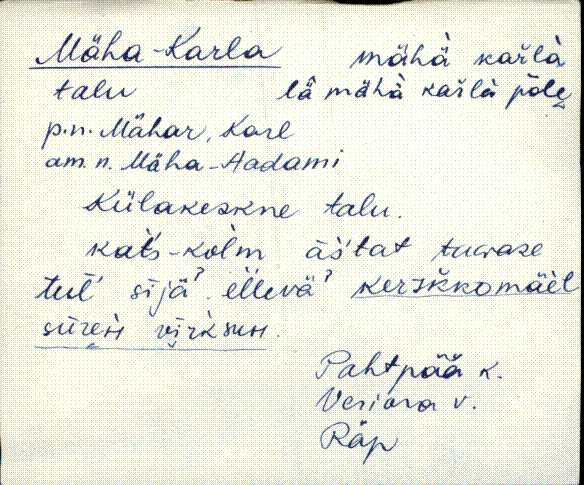 Mäha-Karla mähà kar̆là
talu lǟ mähà kar̆là põle
p.n. Mähar, Karl
am. n. Mäha-Aadami
Külakeskne talu.
kat́s-kol̀m ās̀tat tavvase
tuĺ sijä? ellevä? kerikkomäèl
sūreн virksuн.
Pahtpää k.
Veriora v.
Räp